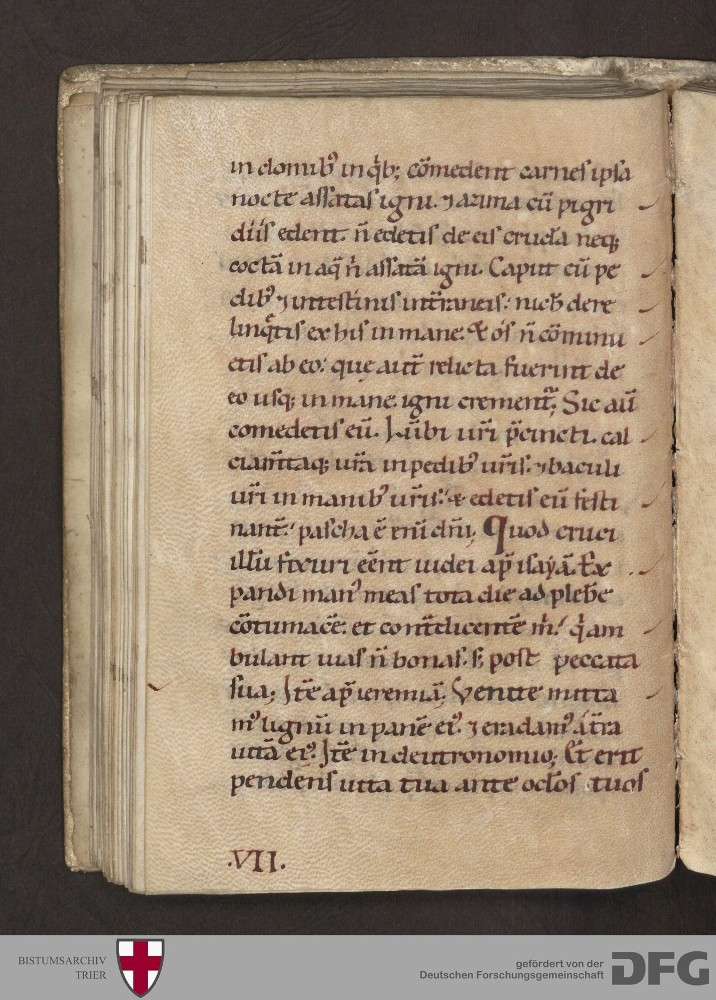 in domibꝰ in q̇b; cōmedent carnes ipsa
nocte assatas igni. ⁊ azima cū pigri
diis edent. n̄ edetis de eis crudā neq;
coctā in aq̄ n̄ assatā igni. Caput cū pe
dibꝰ ⁊ intestinis int̄raneis: nich̄ dere
linq̄tis ex his in mane. & os n̄ cōminu
etis ab eo: que aut̄ relicta fuerint de
eo usq; in mane igni crement̄; Sic aū
comedetis eū. Lūbi ur̄i p̄cincti. cal
ciam̄taq; ur̄a in pedibꝰ ur̄is: ⁊ baculi
ur̄i in manibꝰ ur̄is: & edetis eū festi
nant̄: pascha ē eni͂ dn̄i; Quod cruci
illū fixuri eēnt iudei ap̄ isayā. Ex
pandi manꝰ meas tota die ad plebē
cōtumacē. et cont̄dicentē m̄: q̇ am
bulant uias n̄ bonas. s; post peccata
sua; Itē ap̄ ieremiā. Venite mitta
mꝰ lignū in panē eiꝰ. ⁊ eradamꝰ a t̄ra
uitā eiꝰ. Itē in deutronomio; Et erit
pendens uita tua ante oclōs tuos
.VII.
BISTUMSARCHIV
TRIER
gefördert von der
Deutschen Forschungsgemeinschaft
DFG